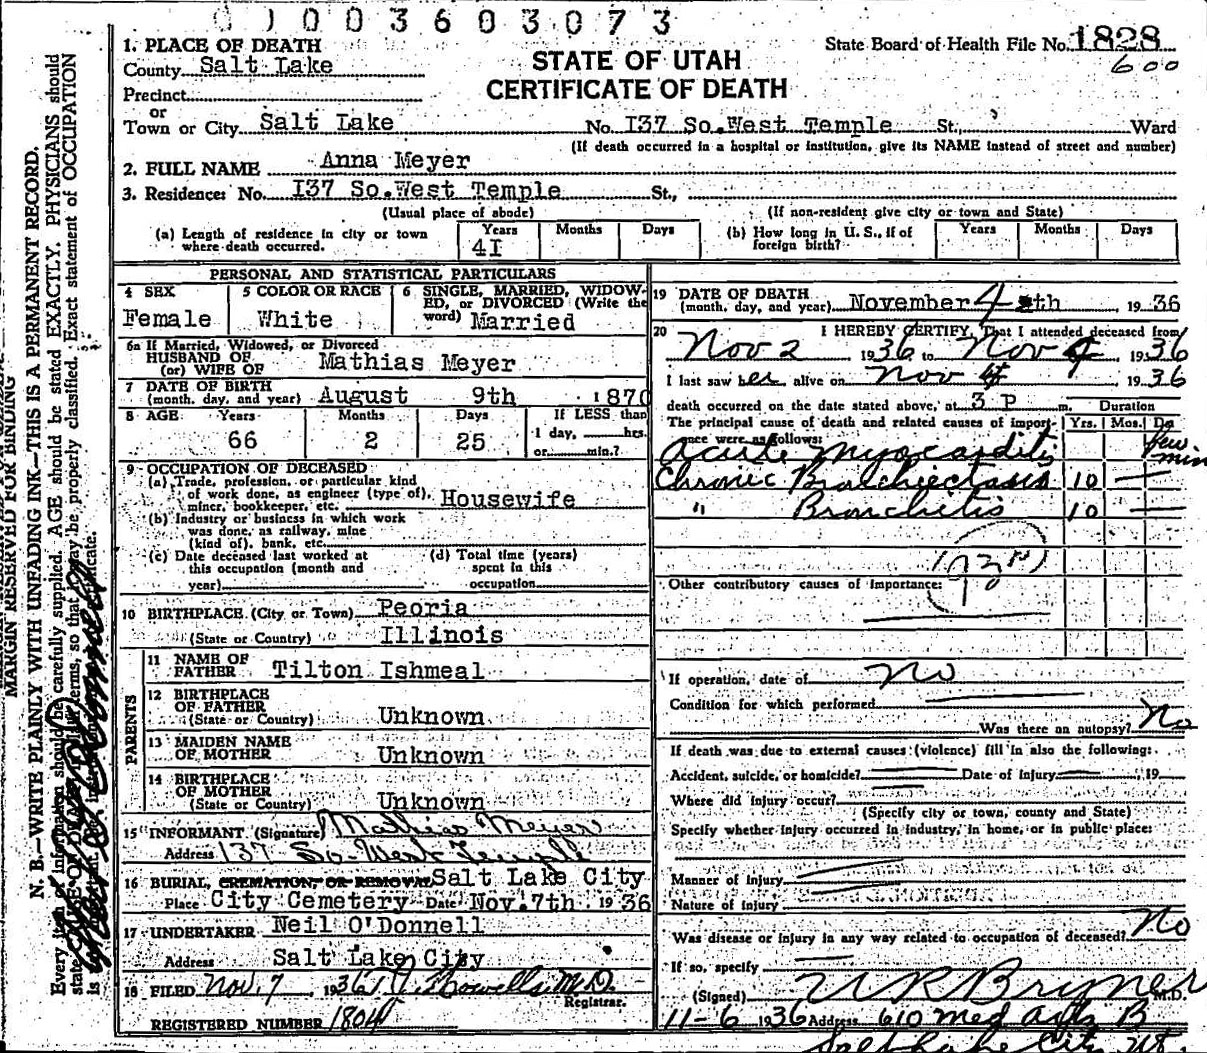 0 1 0 0 3 6 0 3 0 7 3
1. PLACE OF DEATH
County Salt Lake
Precinct
or
Town or City Salt Lake
STATE OF UTAH
CERTIFICATE OF DEATH
State Board of Health File No. 1828
600
No. I37 So.West Temple St., Ward
(If death occurred in a hospital or institution, give its NAME instead of street and number)
2. FULL NAME Anna Meyer
3. Residence: No. I37 So.West Temple St.,
(Usual place of abode)
(If non-resident give city or town and State)
(a) Length of residence in city or town where death occurred. Years 4I Months Days
(b) How long in U. S., if of foreign birth? Years Months Days
PERSONAL AND STATISTICAL PARTICULARS
4 SEX Female
5 COLOR OR RACE White
6 SINGLE, MARRIED, WIDOWED, or DIVORCED (Write the word) Married
6a If Married, Widowed, or Divorced
HUSBAND OF
(or) WIFE OF Mathias Meyer
7 DATE OF BIRTH
(month, day, and year) August 9th 1870
8 AGE Years 66 Months 2 Days 25 If LESS than 1 day, hrs. or min.?
9 OCCUPATION OF DECEASED
(a) Trade, profession, or particular kind
of work done, as engineer (type of),
miner, bookkeeper, etc. Housewife
(b) Industry or business in which work
was done, as railway, mine
(kind of), bank, etc.
(c) Date deceased last worked at
this occupation (month and
year)
(d) Total time (years)
spent in this
occupation
10 BIRTHPLACE (City or Town) Peoria
(State or Country) Illinois
PARENTS
11 NAME OF FATHER Tilton Ishmeal
12 BIRTHPLACE OF FATHER
(State or Country) Unknown
13 MAIDEN NAME OF MOTHER Unknown
14 BIRTHPLACE OF MOTHER
(State or Country) Unknown
15 INFORMANT (Signature) Mathias Meyer
Address 137 So-West Temple
16 BURIAL, CREMATION, OR REMOVAL Salt Lake City
Place City Cemetery Date Nov. 7th 1936
17 UNDERTAKER Neil O'Donnell
Address Salt Lake City
18 FILED Nov. 7, 1936 Howells, M.D.
Registrar.
REGISTERED NUMBER 1804
19 DATE OF DEATH
(month, day, and year) November 4 th 1936
20 I HEREBY CERTIFY, That I attended deceased from
Nov 2 1936 to Nov 4 1936
I last saw her alive on Nov 4 1936
death occurred on the date stated above, at 3 P m.
Duration
The principal cause of death and related causes of importance were as follows: Yrs. Mos. Da
Acute Myocarditis few min
Chronic Bronchiectasis 10 —
" Bronchitis 10 —
Other contributory causes of importance:
If operation, date of No
Condition for which performed
Was there an autopsy? No
If death was due to external causes (violence) fill in also the following:
Accident, suicide, or homicide? Date of injury 19
Where did injury occur?
(Specify city or town, county and State)
Specify whether injury occurred in industry, in home, or in public place:
Manner of Injury
Nature of Injury
Was disease or injury in any way related to occupation of deceased? No
If so, specify
(Signed) U R Bryner M.D.
11-6 1936 Address 610 Med Arts B
Salt Lake City Ut.
MARGIN RESERVED FOR BINDING
N. B.—WRITE PLAINLY WITH UNFADING INK—THIS IS A PERMANENT RECORD.
Every item of information should be carefully supplied. AGE should be stated EXACTLY. PHYSICIANS should
state CAUSE OF DEATH in terms, so that it may be properly classified. Exact statement of OCCUPATION
is